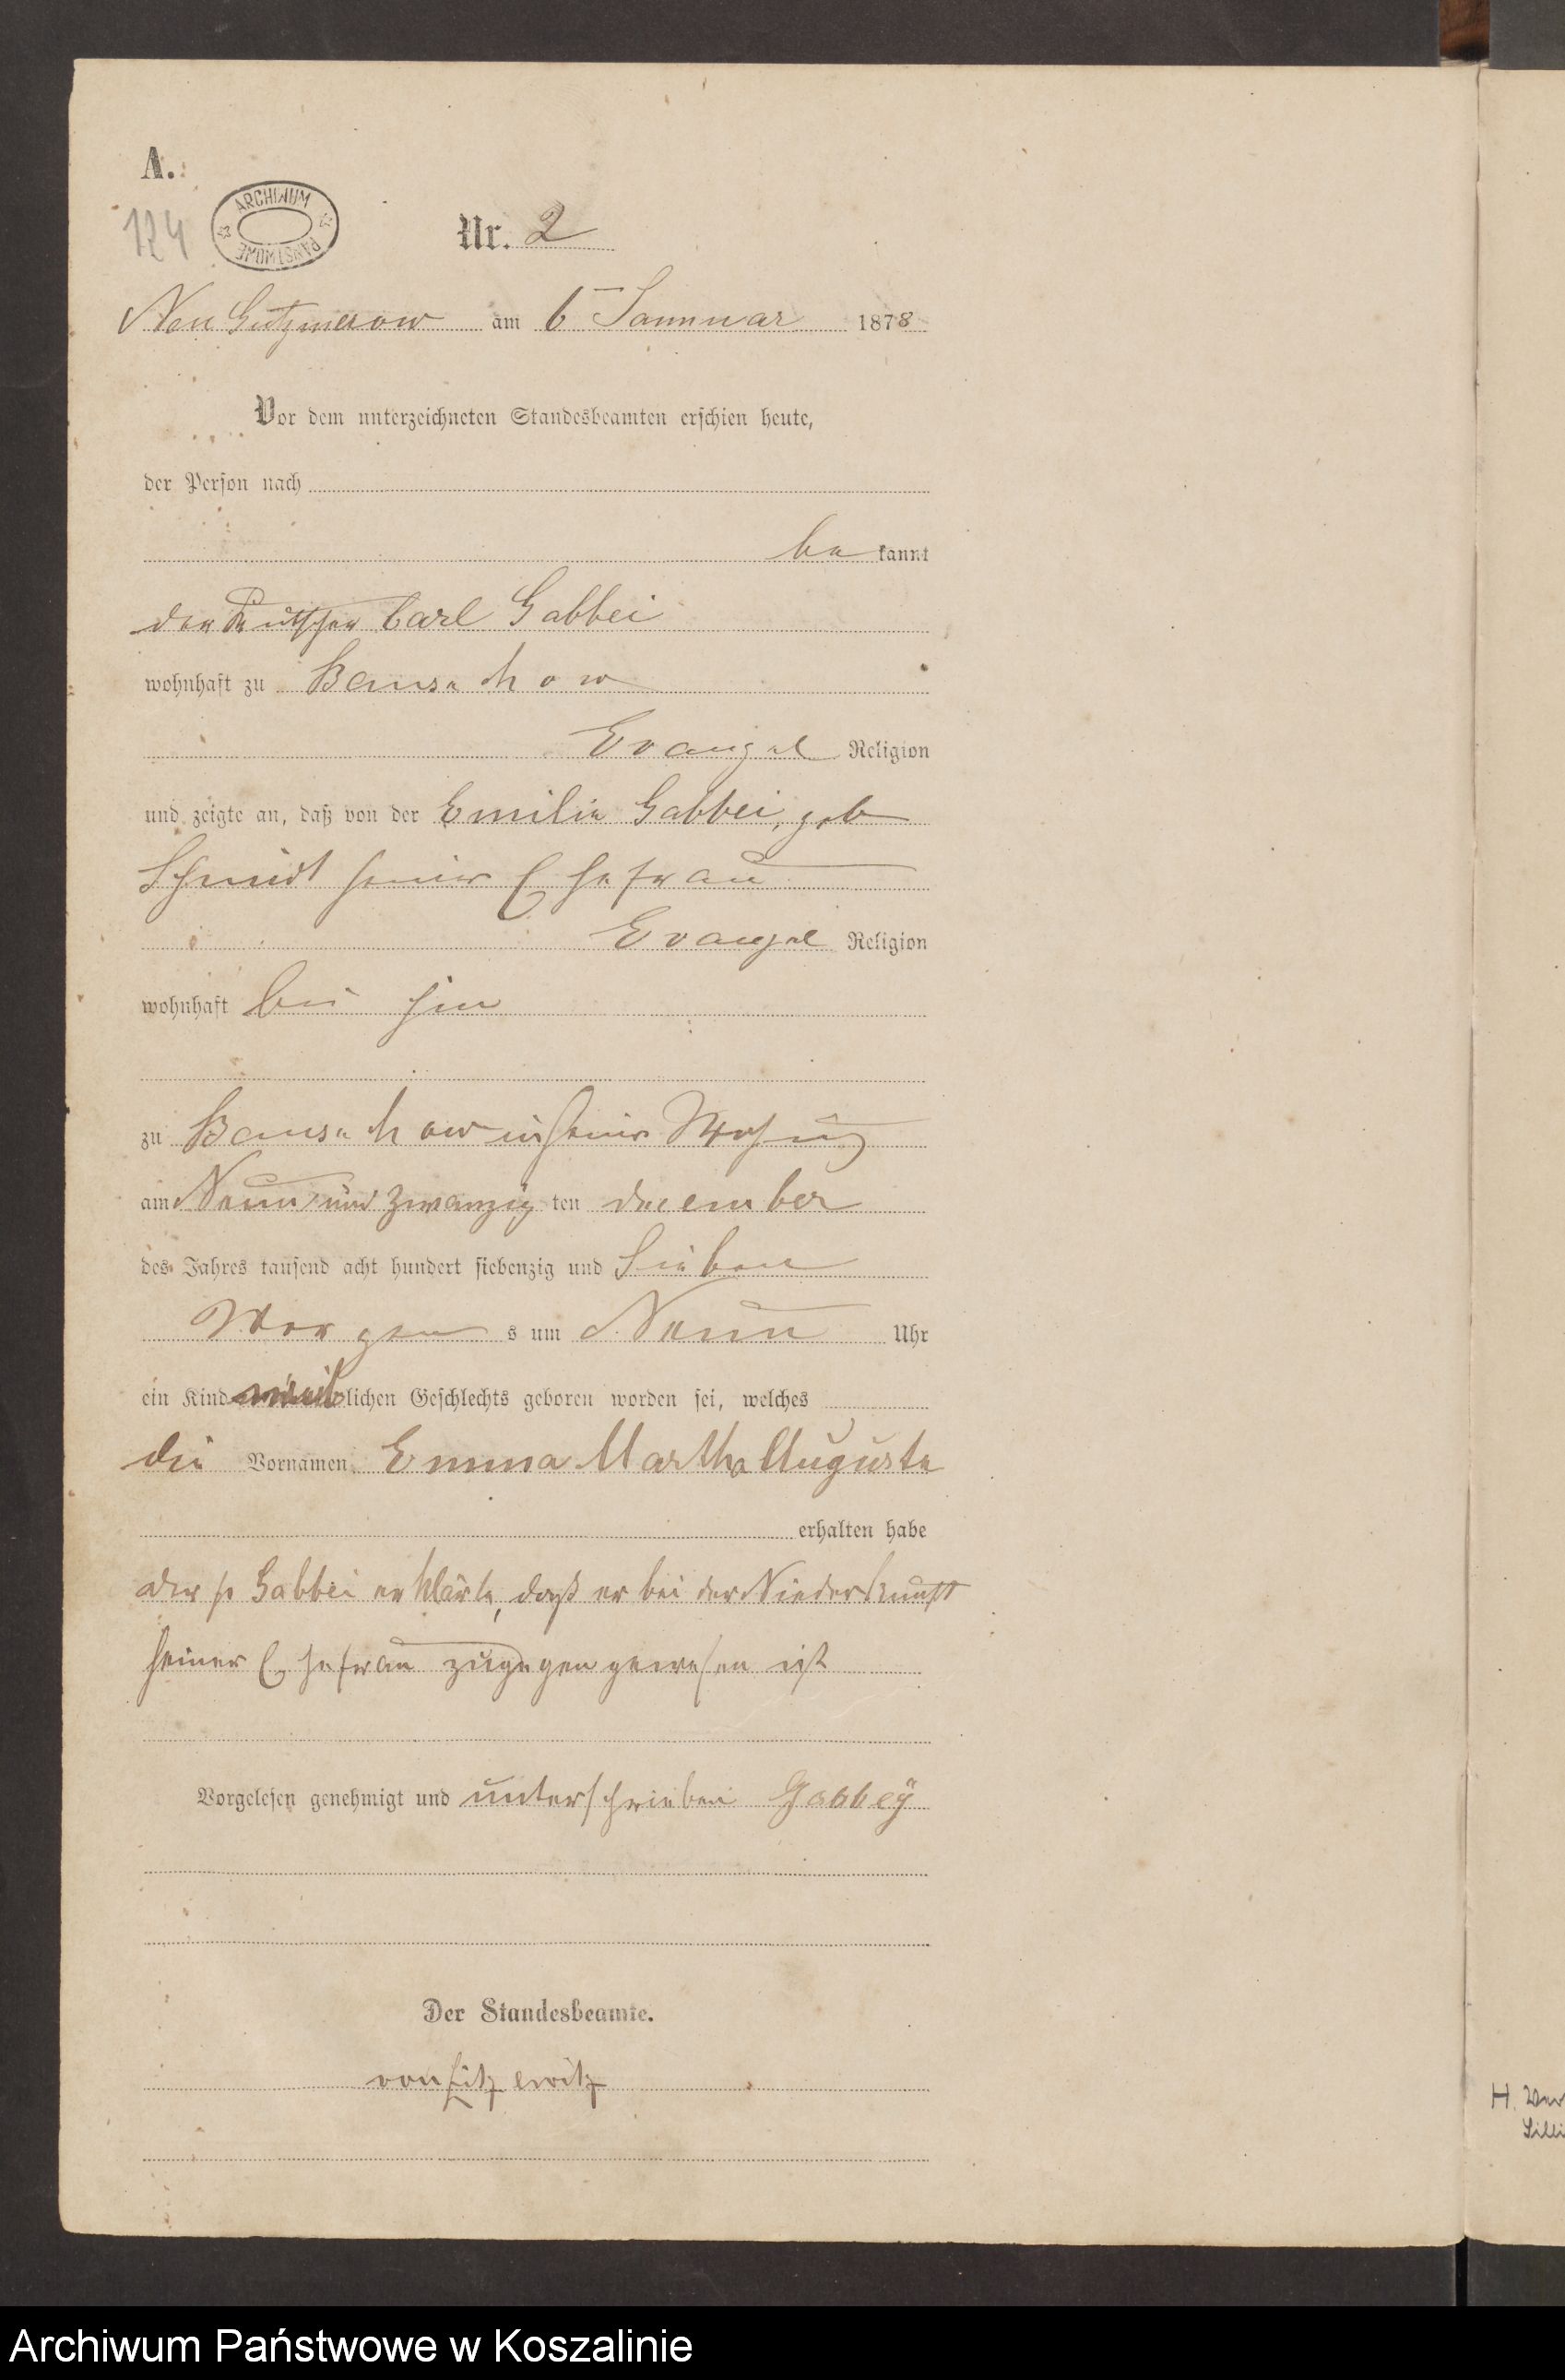 A.
124
ARCHIWUM PAŃSTWOWE
Nr. 2
Neu Gutzmerow am 6 Januar 1878
Vor dem unterzeichneten Standesbeamten erschien heute,
der Person nach
be kannt
der Kutscher Carl Gabbei
wohnhaft zu Bansekow
Evangel Religion
und zeigte an, daß von der Emilie Gabbei, geb
Schmidt seiner Ehefrau
Evangel Religion
wohnhaft bei ihm
zu Bansekow in seiner Wohnung
am Neun und zwanzig ten December
des Jahres tausend acht hundert siebenzig und Sieben
Morgen s um Neun Uhr
ein Kind weib lichen Geschlechts geboren worden sei, welches
die Vornamen Emma Martha Auguste
erhalten habe
der Gabbei erklärte, daß er bei der Niederkunft
seiner Ehefrau zugegen gewesen ist
Vorgelesen genehmigt und unterschrieben Gabbeÿ
Der Standesbeamte.
von Zitzewitz
H. Wer
Silli
Archiwum Państwowe w Koszalinie